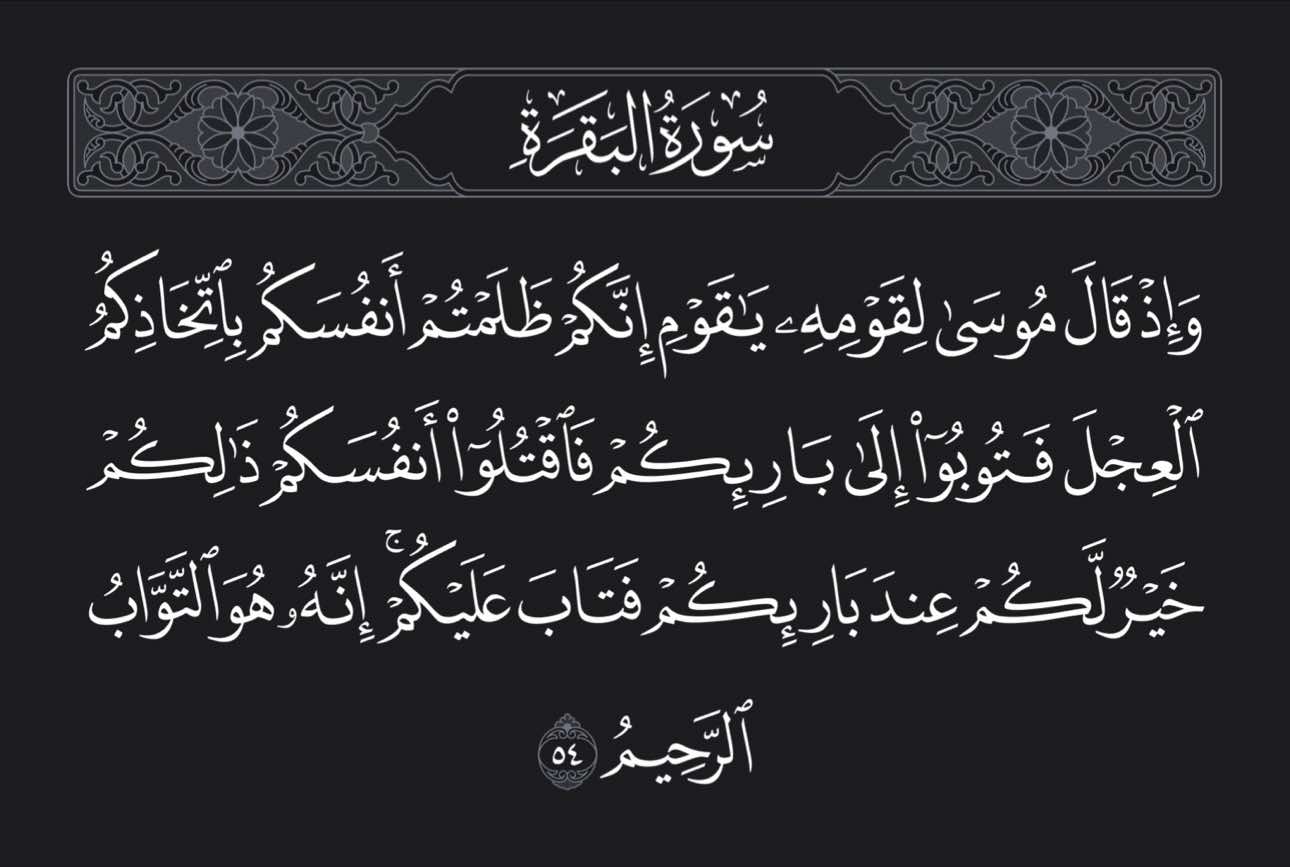 سُورَةُ البَقَرَةِ
وَإِذْ قَالَ مُوسَىٰ لِقَوْمِهِۦ يَـٰقَوْمِ إِنَّكُمْ ظَلَمْتُمْ أَنفُسَكُم بِٱتِّخَاذِكُمُ
ٱلْعِجْلَ فَتُوبُوٓا۟ إِلَىٰ بَارِئِكُمْ فَٱقْتُلُوٓا۟ أَنفُسَكُمْ ذَٰلِكُمْ
خَيْرٌ لَّكُمْ عِندَ بَارِئِكُمْ فَتَابَ عَلَيْكُمْ ۚ إِنَّهُۥ هُوَ ٱلتَّوَّابُ
ٱلرَّحِيمُ ٥٤